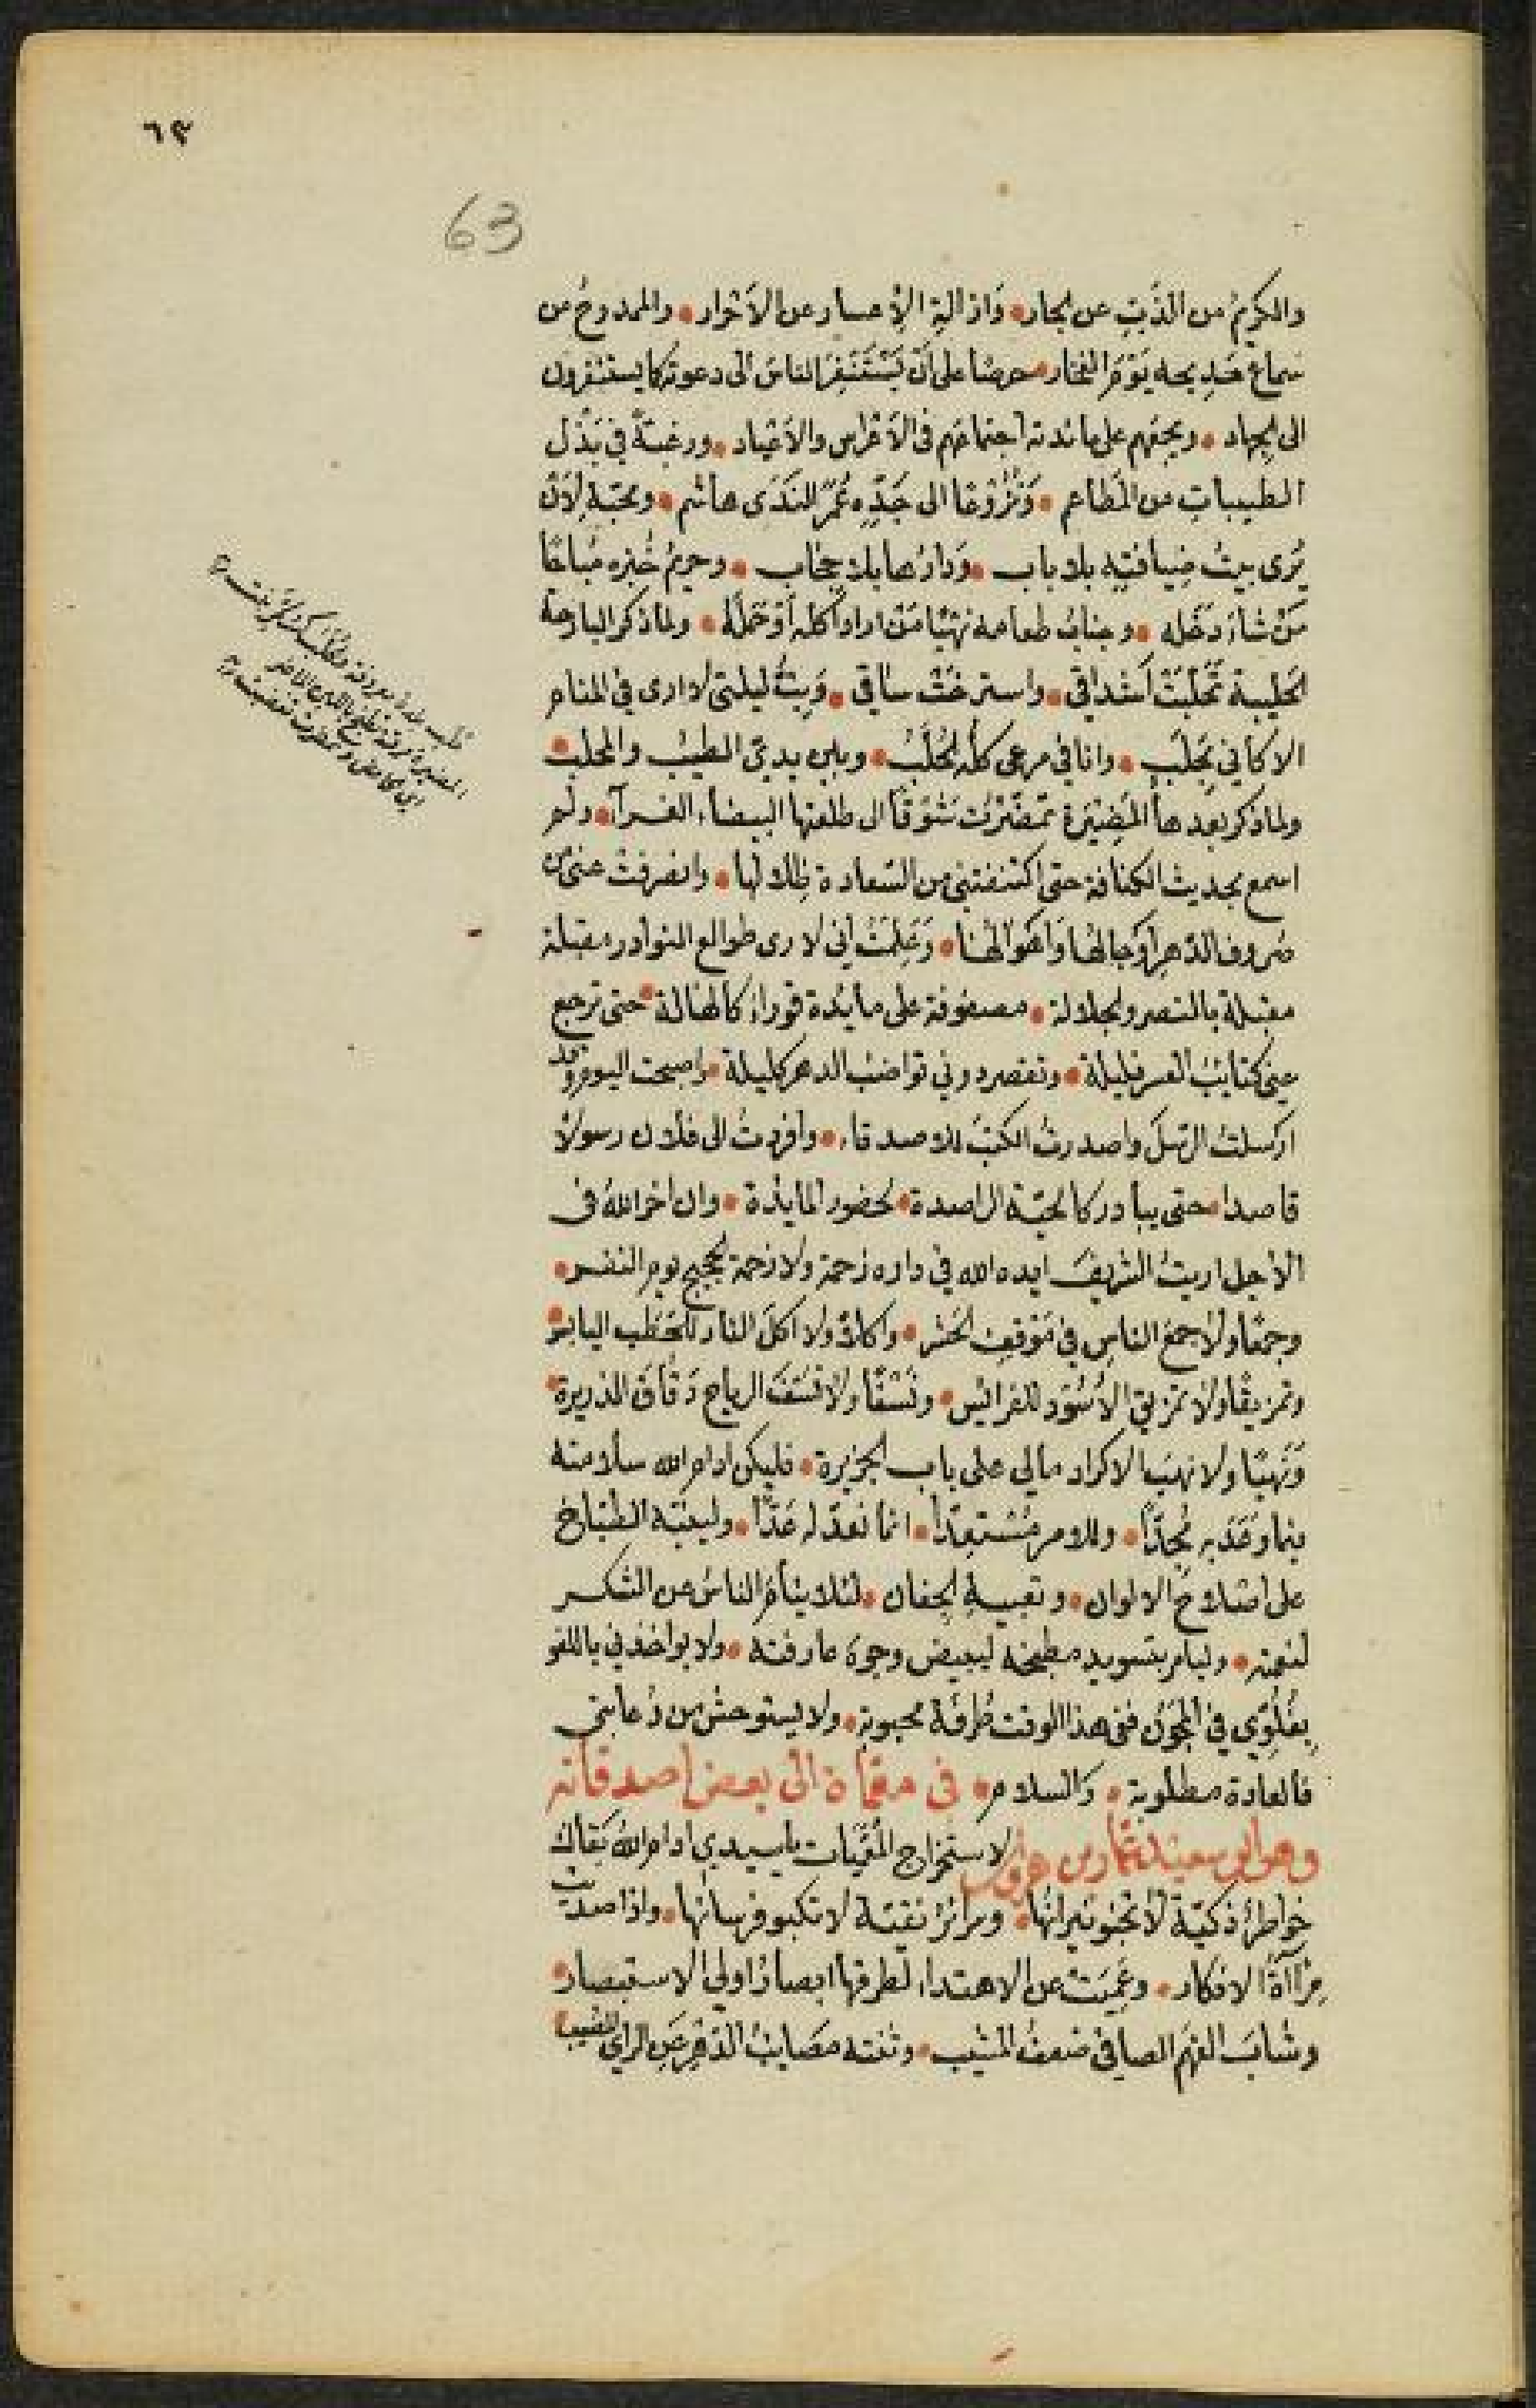 ٦٣
63
والكريمُ من الذَّبِّ عن الجار • وَازالةِ الإعسار عن الأحْرار • والممدوحُ من
سماع مَديحه يَوْمَ الفخار • حرصًا على انْ يَسْتَنْفِرَ الناسَ الى دعوته كما يستنفرون
الى الجهاد • ويجمعهم على مائدته اجتماعَهم في الأعْراس والأعْياد • ورغبةً في بَذْل
الطيبات من المَطاعم • وَنُزُوعًا الى جَدِّه عَمْرِ النَدَى هاشم • ومحبّة لِأنْ
يُرَى بيتُ ضِيافتِهِ بلا باب • وَدارُها بلا حِجاب • وحريمُ خُبْزه مُباحًا
مَنْ شاءَ دَخَله • وجنابُ طعامه نَهْبًا مَنْ اراد اكلَه أوْ حَمَلَه • ولما ذكر البارحة
الحَليبية تَحَلَّبَتْ أشْداقي • واسترخَتْ ساقي • وَبِتُّ ليلتي لا ارى في المنام
الا كأني بِحَلَب • وانا في مرعى كلُّه الحُلَّبُ • وبين يديّ الطيبُ والمحلب •
ولما ذكر بَعدها المَضِيْرَة تمضّرْت شَوْقًا الى طلعتها البيضاء الغرآء • ولم
اسمع بحديث الكنافة حتى اكتنفتني من السّعادة ظِلالها • وانصرفتْ عني من
صُروف الدّهر أوجالُها وَاهوالُها • وَعَلِمْتُ اني لا ارى طوالع النوادر مقبلة
مقبلة بالنصر والجلالة • مصفوفة على مايدة قوراءَ كالهالة • حتى ترجع
عني كتايبُ العسر فليلة • وتقصر دوني نواضب الدهر كليلة • واصبحت اليوم وقد
ارسلتُ الرسلَ واصدرتُ الكتبَ للاصدقاء • وافردتُ الى فلان رسولاً
قاصدا • حتى يبادر كالحيّة الراصدة • لحضور المايدة • وان اخر اللهُ في
الأجل اريتُ الشريفَ ايده الله في داره زحمة ولا زحمة الحجيج يوم النفر •
وجمعًا ولا جمعَ الناسِ في مَوْقِفِ الحَشر • واكلاً ولا اكلَ النار للحَطب اليابس •
وتمزيقًا ولا تمزيق الأُسُود للفرائس • ونَسْفًا ولا نَسْفَ الرياح دَقاقَ الذريرة •
وَنَهبًا ولا نهبَ الاكراد مالي على باب الجزيرة • فليكن ادام الله سلامته
بما وَعَدَ به مُجدّا • وللامر مُسْتَعِدّا • انما نعدّ له عَدّا • ولينبّه الطبّاخَ
على اصلاح الالوان • وتعبيةِ الجِفان • لئلا ينام الناسُ عن الشكر
لنعمته • وليامر بتسويد مطبخه ليبيض وجوهَ عارفته • ولا يواخذني باللغو
بِغُلُوّي في المجُون ففي هذا الوقت طُرفَة محبوبة • ولا يستوحش من دُعابتي
فالعادة مطلوبة • والسلام • في معمّاة الى بعض اصدقائه
وهو ابو سعيد عمار بن هرون لاستخراج المُعَمَّيات يا سيدي ادام اللهُ بَقاك
خواطرُ ذكيّة لا تخبو نيرانُها • وسرائرُ نقيّة لا تكبو فرسانُها • واذا صديت
مِرْآةُ الافكار • وعَمِيَتْ عن الاهتداء لطرقها ابصارُ اولي الاستبصار •
وشابَ الفهَم الصافي ضعفُ المشيب • وثنته مصايبُ الدَهْرِ عَنِ الراي المصيب